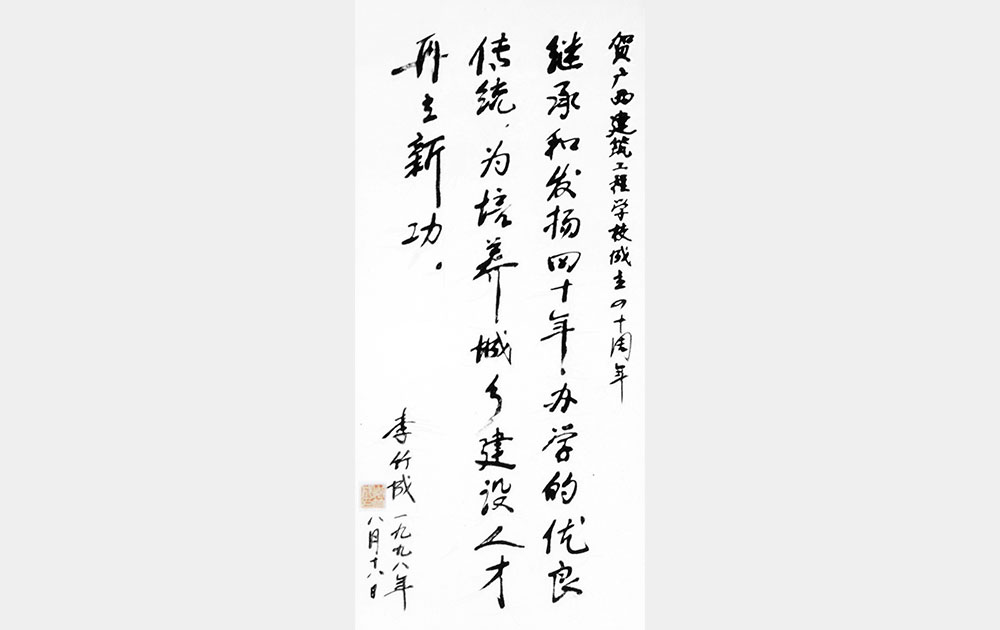 贺广西建筑工程学校成立四十周年
继承和发扬四十年办学的优良
传统，为培养城乡建设人才
再立新功。
李竹成 一九九八年
八月十八日